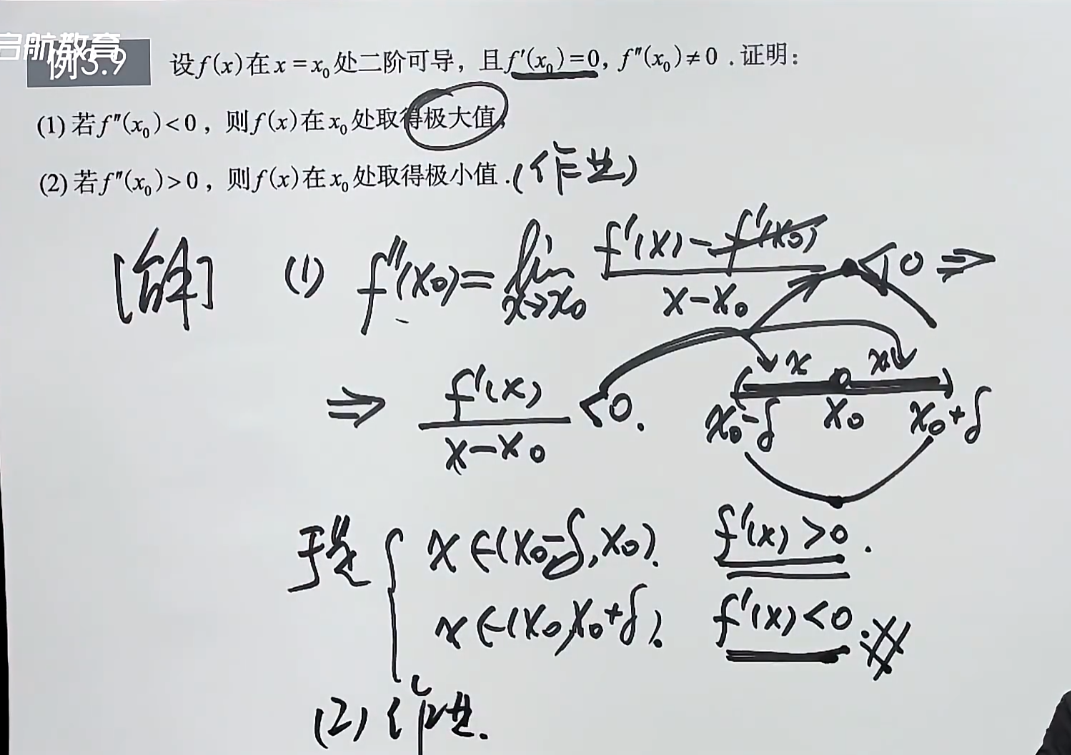 启航教育
例3.9 设f(x)在x=x₀处二阶可导，且f′(x₀)=0，f″(x₀)≠0．证明：
(1) 若f″(x₀)<0，则f(x)在x₀处取得极大值；
(2) 若f″(x₀)>0，则f(x)在x₀处取得极小值．(作业)
[解] (1) f″(x₀)=lim x→x₀ (f′(x)-f′(x₀))/(x-x₀) <0 ⇒
⇒ f′(x)/(x-x₀) <0.
( x x )
x₀-δ x₀ x₀+δ
于是 { x∈(x₀-δ,x₀). f′(x)>0.
x∈(x₀,x₀+δ). f′(x)<0.#
(2) 作业.